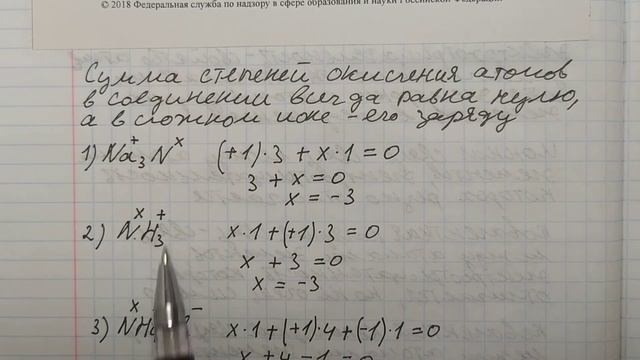 © 2018 Федеральная служба по надзору в сфере образования и науки Российской Федерации
Сумма степеней окисления атомов
в соединении всегда равна нулю,
а в сложном ионе - его заряду
1) Na₃⁺Nˣ (+1)·3 + x·1 = 0
3 + x = 0
x = -3
2) NˣH₃⁺ x·1 + (+1)·3 = 0
x + 3 = 0
x = -3
3) NˣH x·1 + (+1)·4 + (-1)·1 = 0
x + 4 - 1 = 0